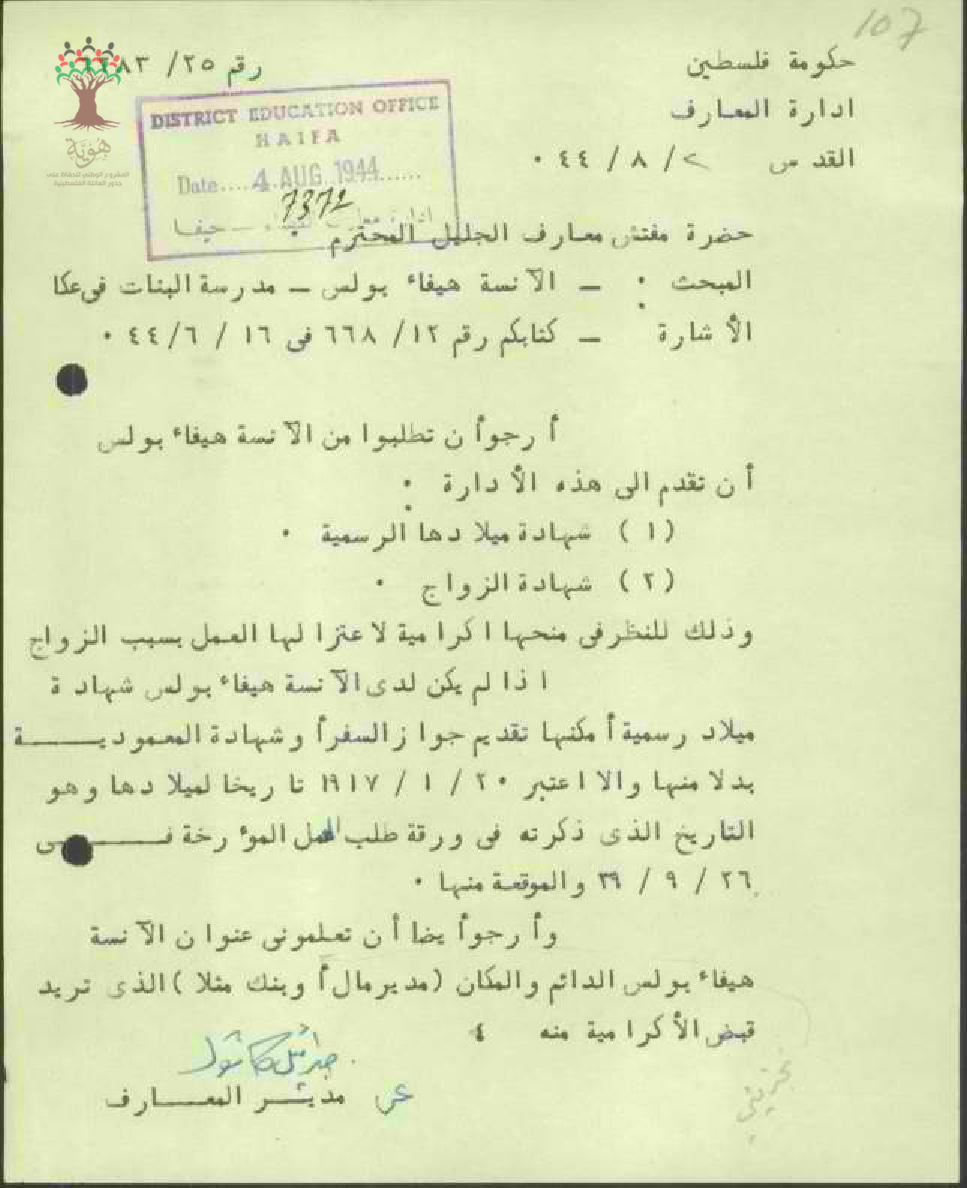 107
حكومة فلسطين
رقم ٢٥/
ادارة المعارف
القدس ٢/ ٨ / ٤٤ ٠
DISTRICT EDUCATION OFFICE
HAIFA
Date.... 4 AUG 1944......
7372
حيفا
هُويّة
المشروع الوطني للحفاظ على
جذور العائلة الفلسطينية
حضرة مفتش معارف الجليل المحترم
المبحث : ـ الآنسة هيفاء بولس ـ مدرسة البنات فى عكا
الأشارة : ـ كتابكم رقم ١٢/ ٦٦٨ فى ١٦ / ٦/ ٤٤ ٠
أرجوأن تطلبوا من الآنسة هيفاء بولس
أن تقدم الى هذه الأدارة :
( ١ ) شهادة ميلادها الرسمية ٠
( ٢ ) شهادة الزواج ٠
وذلك للنظر فى منحها اكرامية لاعتزالها العمل بسبب الزواج
اذا لم يكن لدى الآنسة هيفاء بولس شهادة
ميلاد رسمية أمكنها تقديم جواز السفر أو شهادة المعموديـــــة
بدلا منها والا اعتبر ٢٠ / ١ / ١٩١٧ تاريخا لميلادها وهو
التاريخ الذى ذكرته فى ورقة طلب العمل المؤرخة فـــــى
٢٦ / ٩ / ٣٩ والموقعة منها ٠
وأرجو أيضا أن تعلمونى عنوان الآنسة
هيفاء بولس الدائم والمكان (مدير مال أو بنك مثلا ) الذى تريد
قبض الأكرامية منه
عن مديـــر المعـــــارف